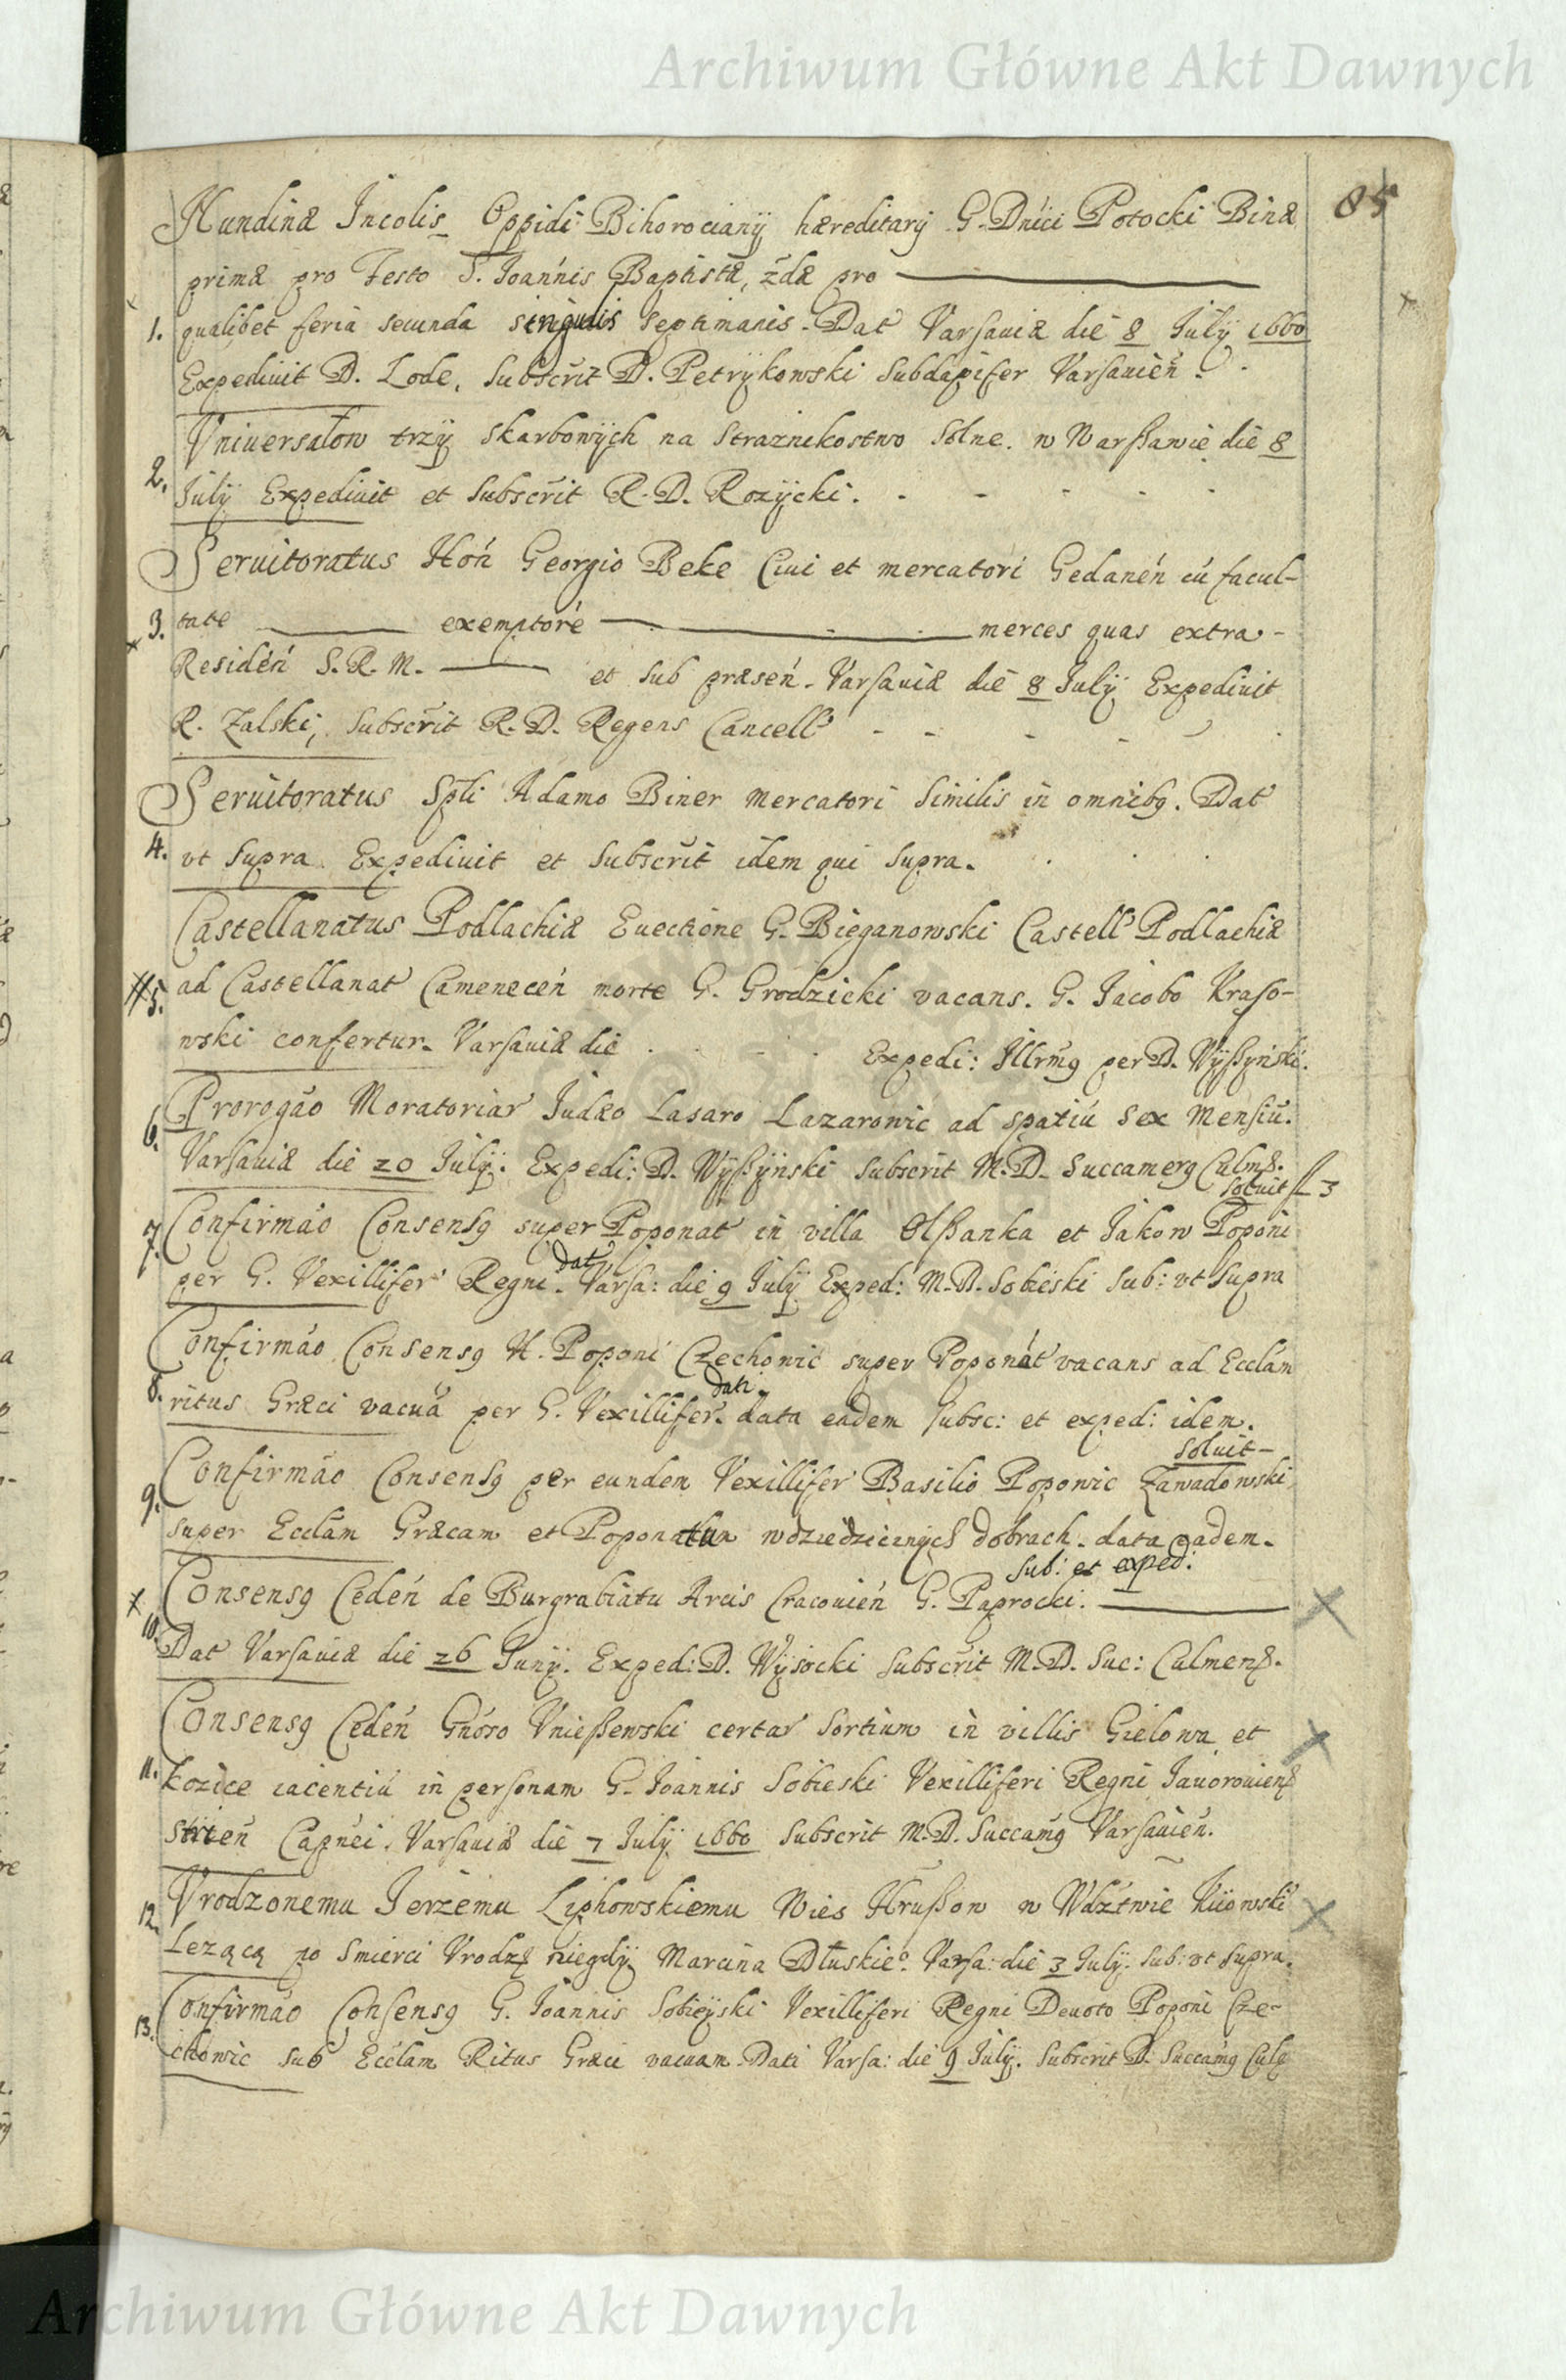 Archiwum Główne Akt Dawnych
85
Nundinæ Incolis Oppidi Bihorocianÿ hæreditarÿ G. Dnici Potocki Binæ
primæ pro Festo S. Joannis Baptistæ, 2dæ pro
1. qualibet feria secunda singulis septimanis. Dat Varsaviæ die 8 Julÿ 1660
Expedivit D. Lode, Subscrit D. Petrÿkowski Subdapifer Varsavień.
Universałow trzÿ skarbowÿch na Straznikostwo Solne. w Warßawie die 8
2. Julÿ Expedivit et Subscrit R. D. Rozÿcki.
Servitoratus Hoń Georgio Beke Civi et mercatori Gedanéń cú facul-
3. tate exemptore merces quas extra-
Residéń S. R. M. et sub præseń. Varsaviæ die 8 Julÿ Expedivit
R. Zalski, Subscrit R. D. Regens Cancell
Servitoratus Spli Adamo Biner mercatori similis in omnibg. Dat
4. vt supra Expedivit et Subscrit idem qui supra.
Castellanatus Podlachiæ Evectione G. Bieganowski Castell Podlachiæ
5. ad Castellanat Cameneceń morte G. Grodzicki vacans. G. Jacobo Kraso-
wski confertur. Varsaviæ die Expedi: Illrmg per D. Wÿßyński.
Prorogáo Moratoriar Judæo Lasaro Lazarowic ad spatiú sex mensiú.
6. Varsaviæ die 20 Julÿ. Expedi: D. Wÿßÿnski Subscrit M. D. Succamerg Culmß.
solvit fl 3
7. Confirmáo Consensg super Poponat in villa Olßanka et Jakow Poponi
dat
per G. Vexillifer Regni. Varsa: die 9 Julÿ Exped: M. D. Sobieski Sub: vt Supra
Confirmáo Consensg H. Poponi Czechowic super Poponat vacans ad Ecclám
dati
8. ritus Græci vacuá per G. Vexillifer. data eadem subsc: et exped: idem.
solvit
Confirmáo Consensg per eundem Vexillifer Basilio Poponic Zawadowski
9. super Ecclám Græcam et Poponatum w dziedzicznych dobrach. data eadem.
Sub: et exped:
Consensg Cedeń de Burgrabiatu Arcis Cracovień G. Paprocki.
10. Dat Varsaviæ die 26 Junÿ. Exped: D. Wÿsocki Subscrit M. D. Suc: Culmenß.
Consensg Cedeń Gnóso Vnießewski certar Sortium in villis Gielowa et
11. Kozice iacentiú in personam G. Joannis Sobieski Vexilliferi Regni Javorovienß
Strień Capnei. Varsaviæ die 7 Julÿ 1660 Subscrit M. D. Succamg Varsavień.
Vrodzonemu Jerzemu Liphowskiemu Wies Hrußow w Wdztwie Kijowski
12. Lezącą po smierci Vrodz niegdÿ Marcina Dłuskieo. Varsa: die 3 Julÿ. Sub: vt supra.
Confirmáo Consensg G. Joannis Sobieÿski Vexilliferi Regni Devoto Poponi Cze-
13. chowic sub Ecclam Ritus Græci vacuam Dati Varsa: die 9 Julÿ. Subscrit D. Succamg Culß
Archiwum Główne Akt Dawnych